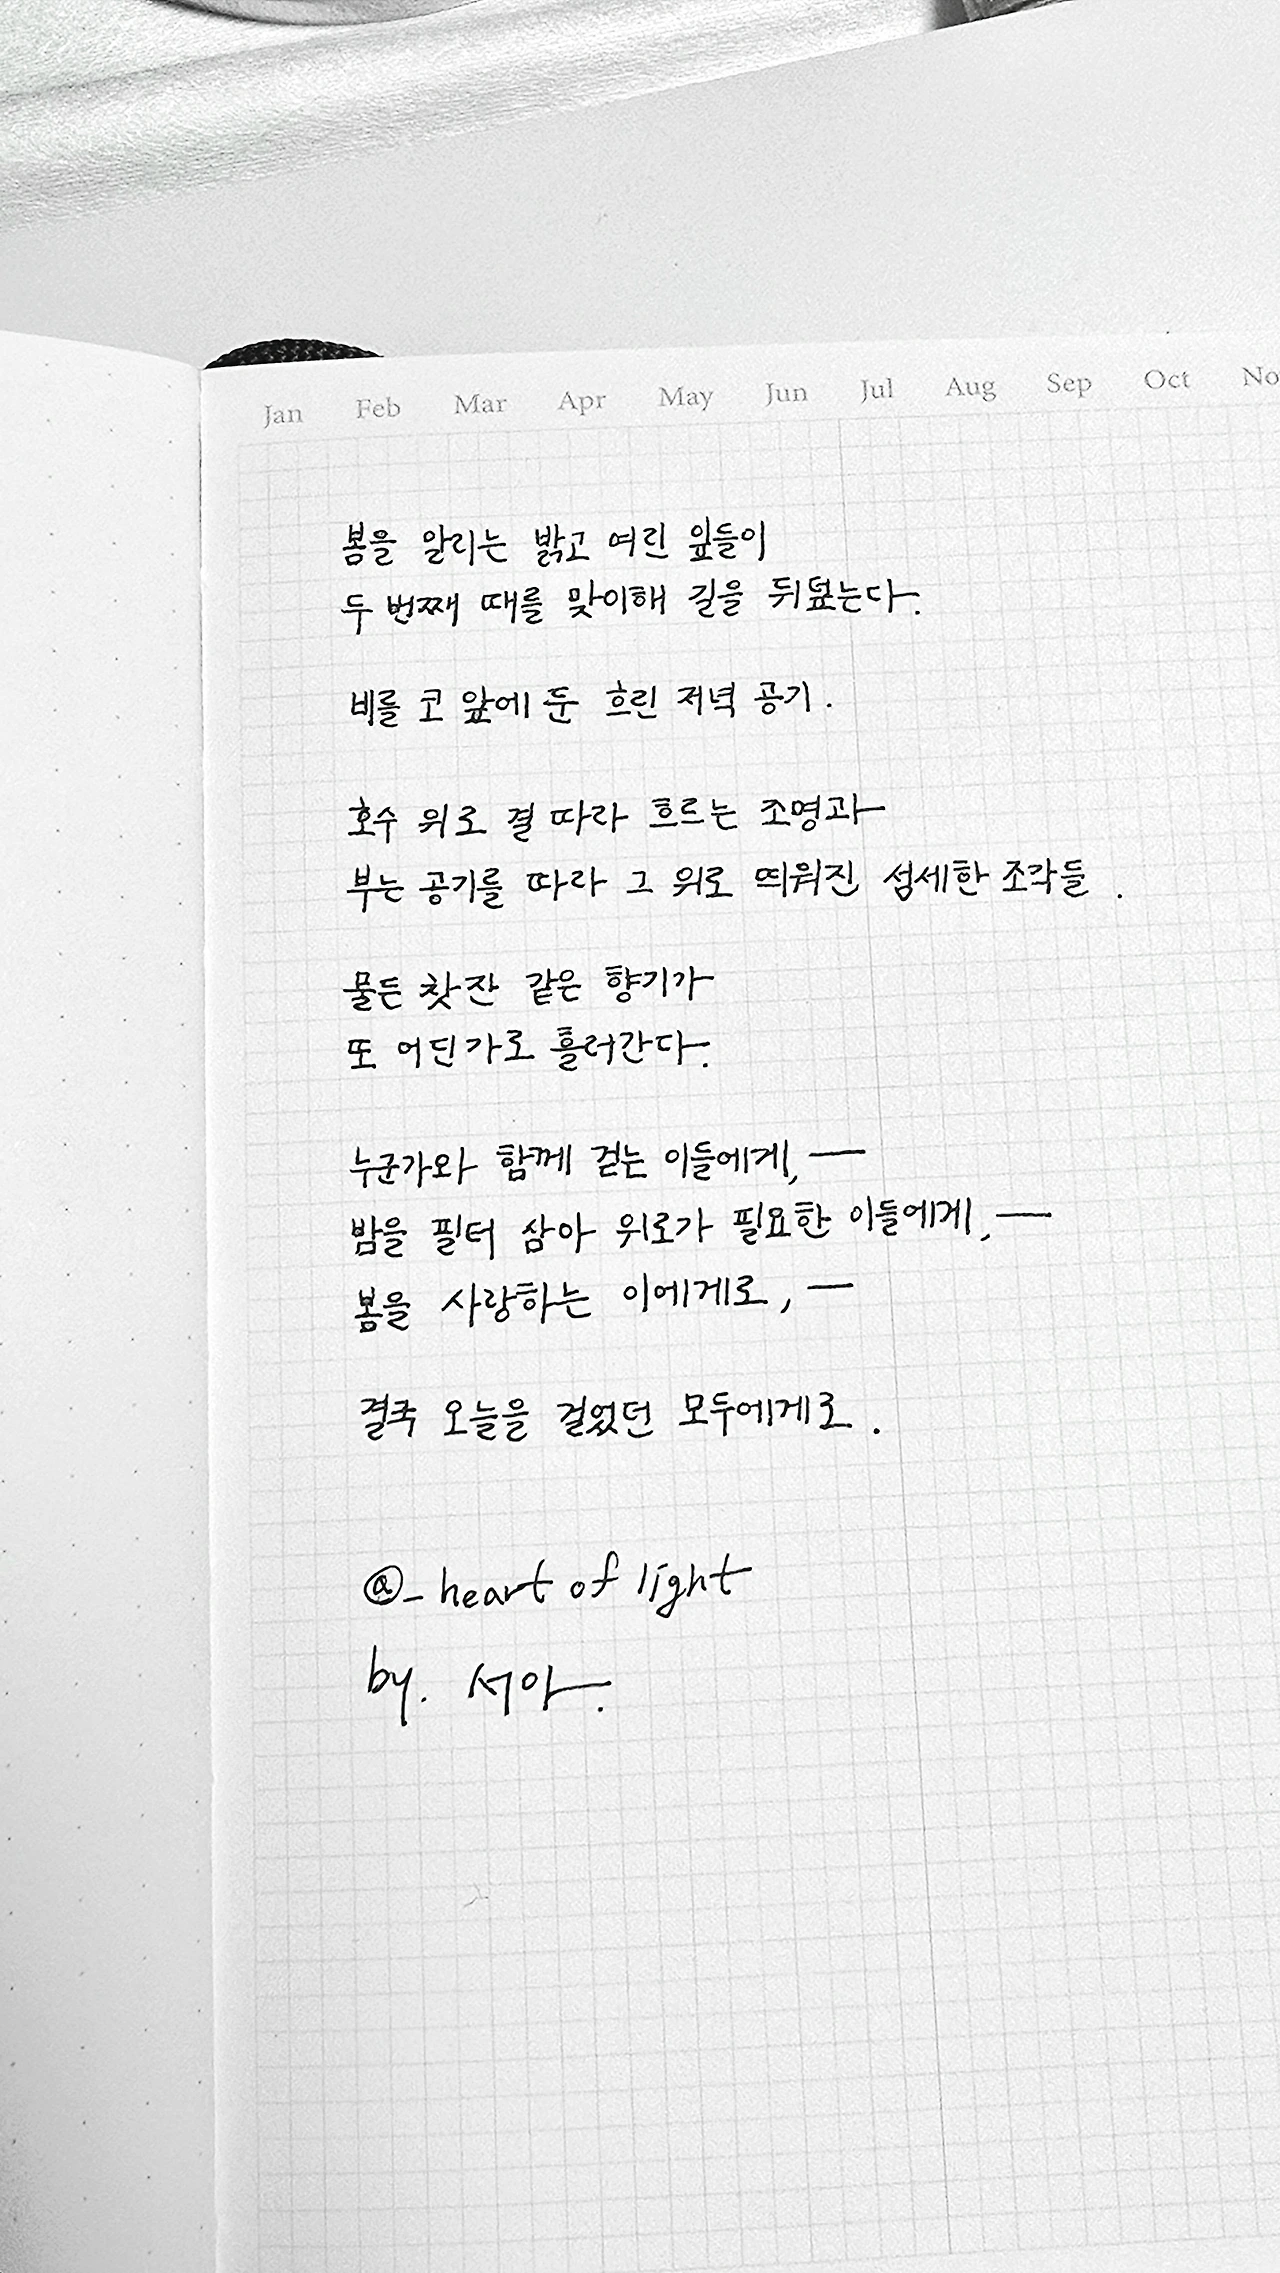 Jan Feb Mar Apr May Jun Jul Aug Sep Oct No
봄을 알리는 밝고 여린 잎들이
두 번째 때를 맞이해 길을 뒤덮는다.
비를 코 앞에 둔 흐린 저녁 공기.
호수 위로 결 따라 흐르는 조명과
부는 공기를 따라 그 위로 띄워진 섬세한 조각들.
물든 찻잔 같은 향기가
또 어딘가로 흘러간다.
누군가와 함께 걷는 이들에게, —
밤을 필터 삼아 위로가 필요한 이들에게, —
봄을 사랑하는 이에게로, —
결국 오늘을 걸었던 모두에게로.
@_heart of light
by. 서아.